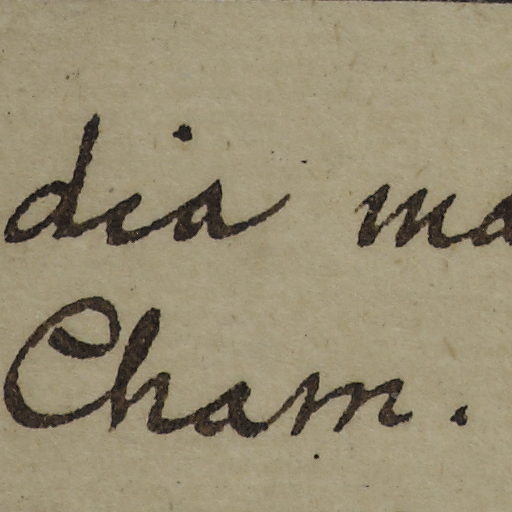 dia ma
Cham.